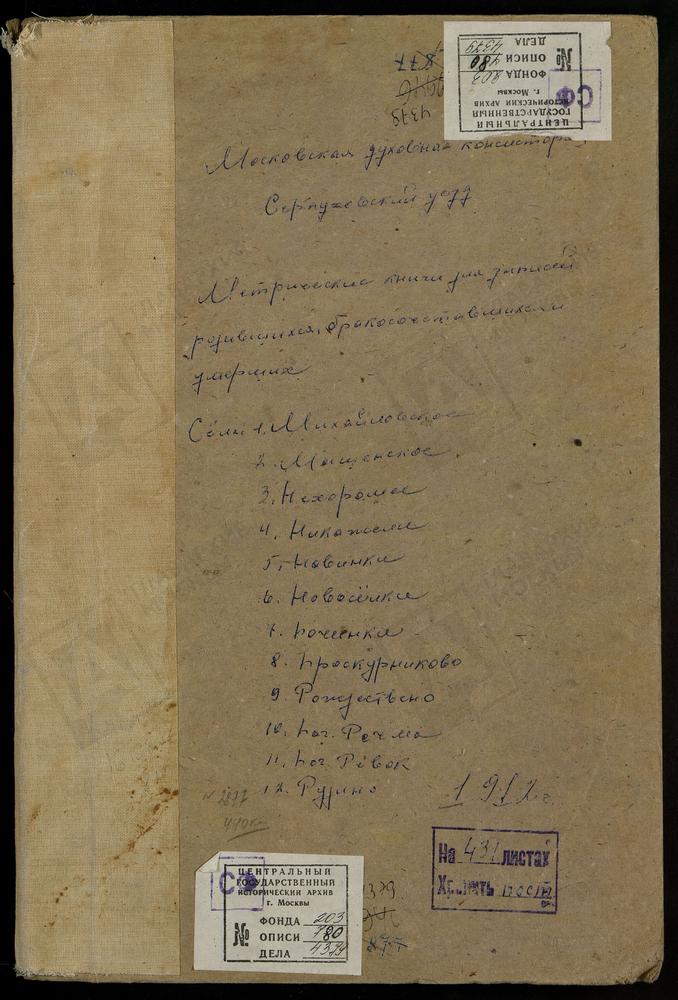 ЦЕНТРАЛЬНЫЙ
ГОСУДАРСТВЕННЫЙ
ИСТОРИЧЕСКИЙ АРХИВ
г. Москвы
№ ФОНДА 203
ОПИСИ 780
ДЕЛА 4379
СФ
877
4379
Московская духовная консистория
Серпуховский уезд
Метрические книги для записей
родившихся, бракосочетавшихся и
умерших
Сёла 1. Михайловское
2. Мащенское
3. Нехорошее
4. Никажели
5. Новинки
6. Новосёлки
7. Починки
8. Проскурниково
9. Рождествено
10. Пог. Рочма
11. Пог. Рёвок
12. Рудино
1912 г.
N 2877
На 431 листах
Хранить пост.
СФ
ЦЕНТРАЛЬНЫЙ
ГОСУДАРСТВЕННЫЙ
ИСТОРИЧЕСКИЙ АРХИВ
г. Москвы
№ ФОНДА 203
ОПИСИ 780
ДЕЛА 4379
877